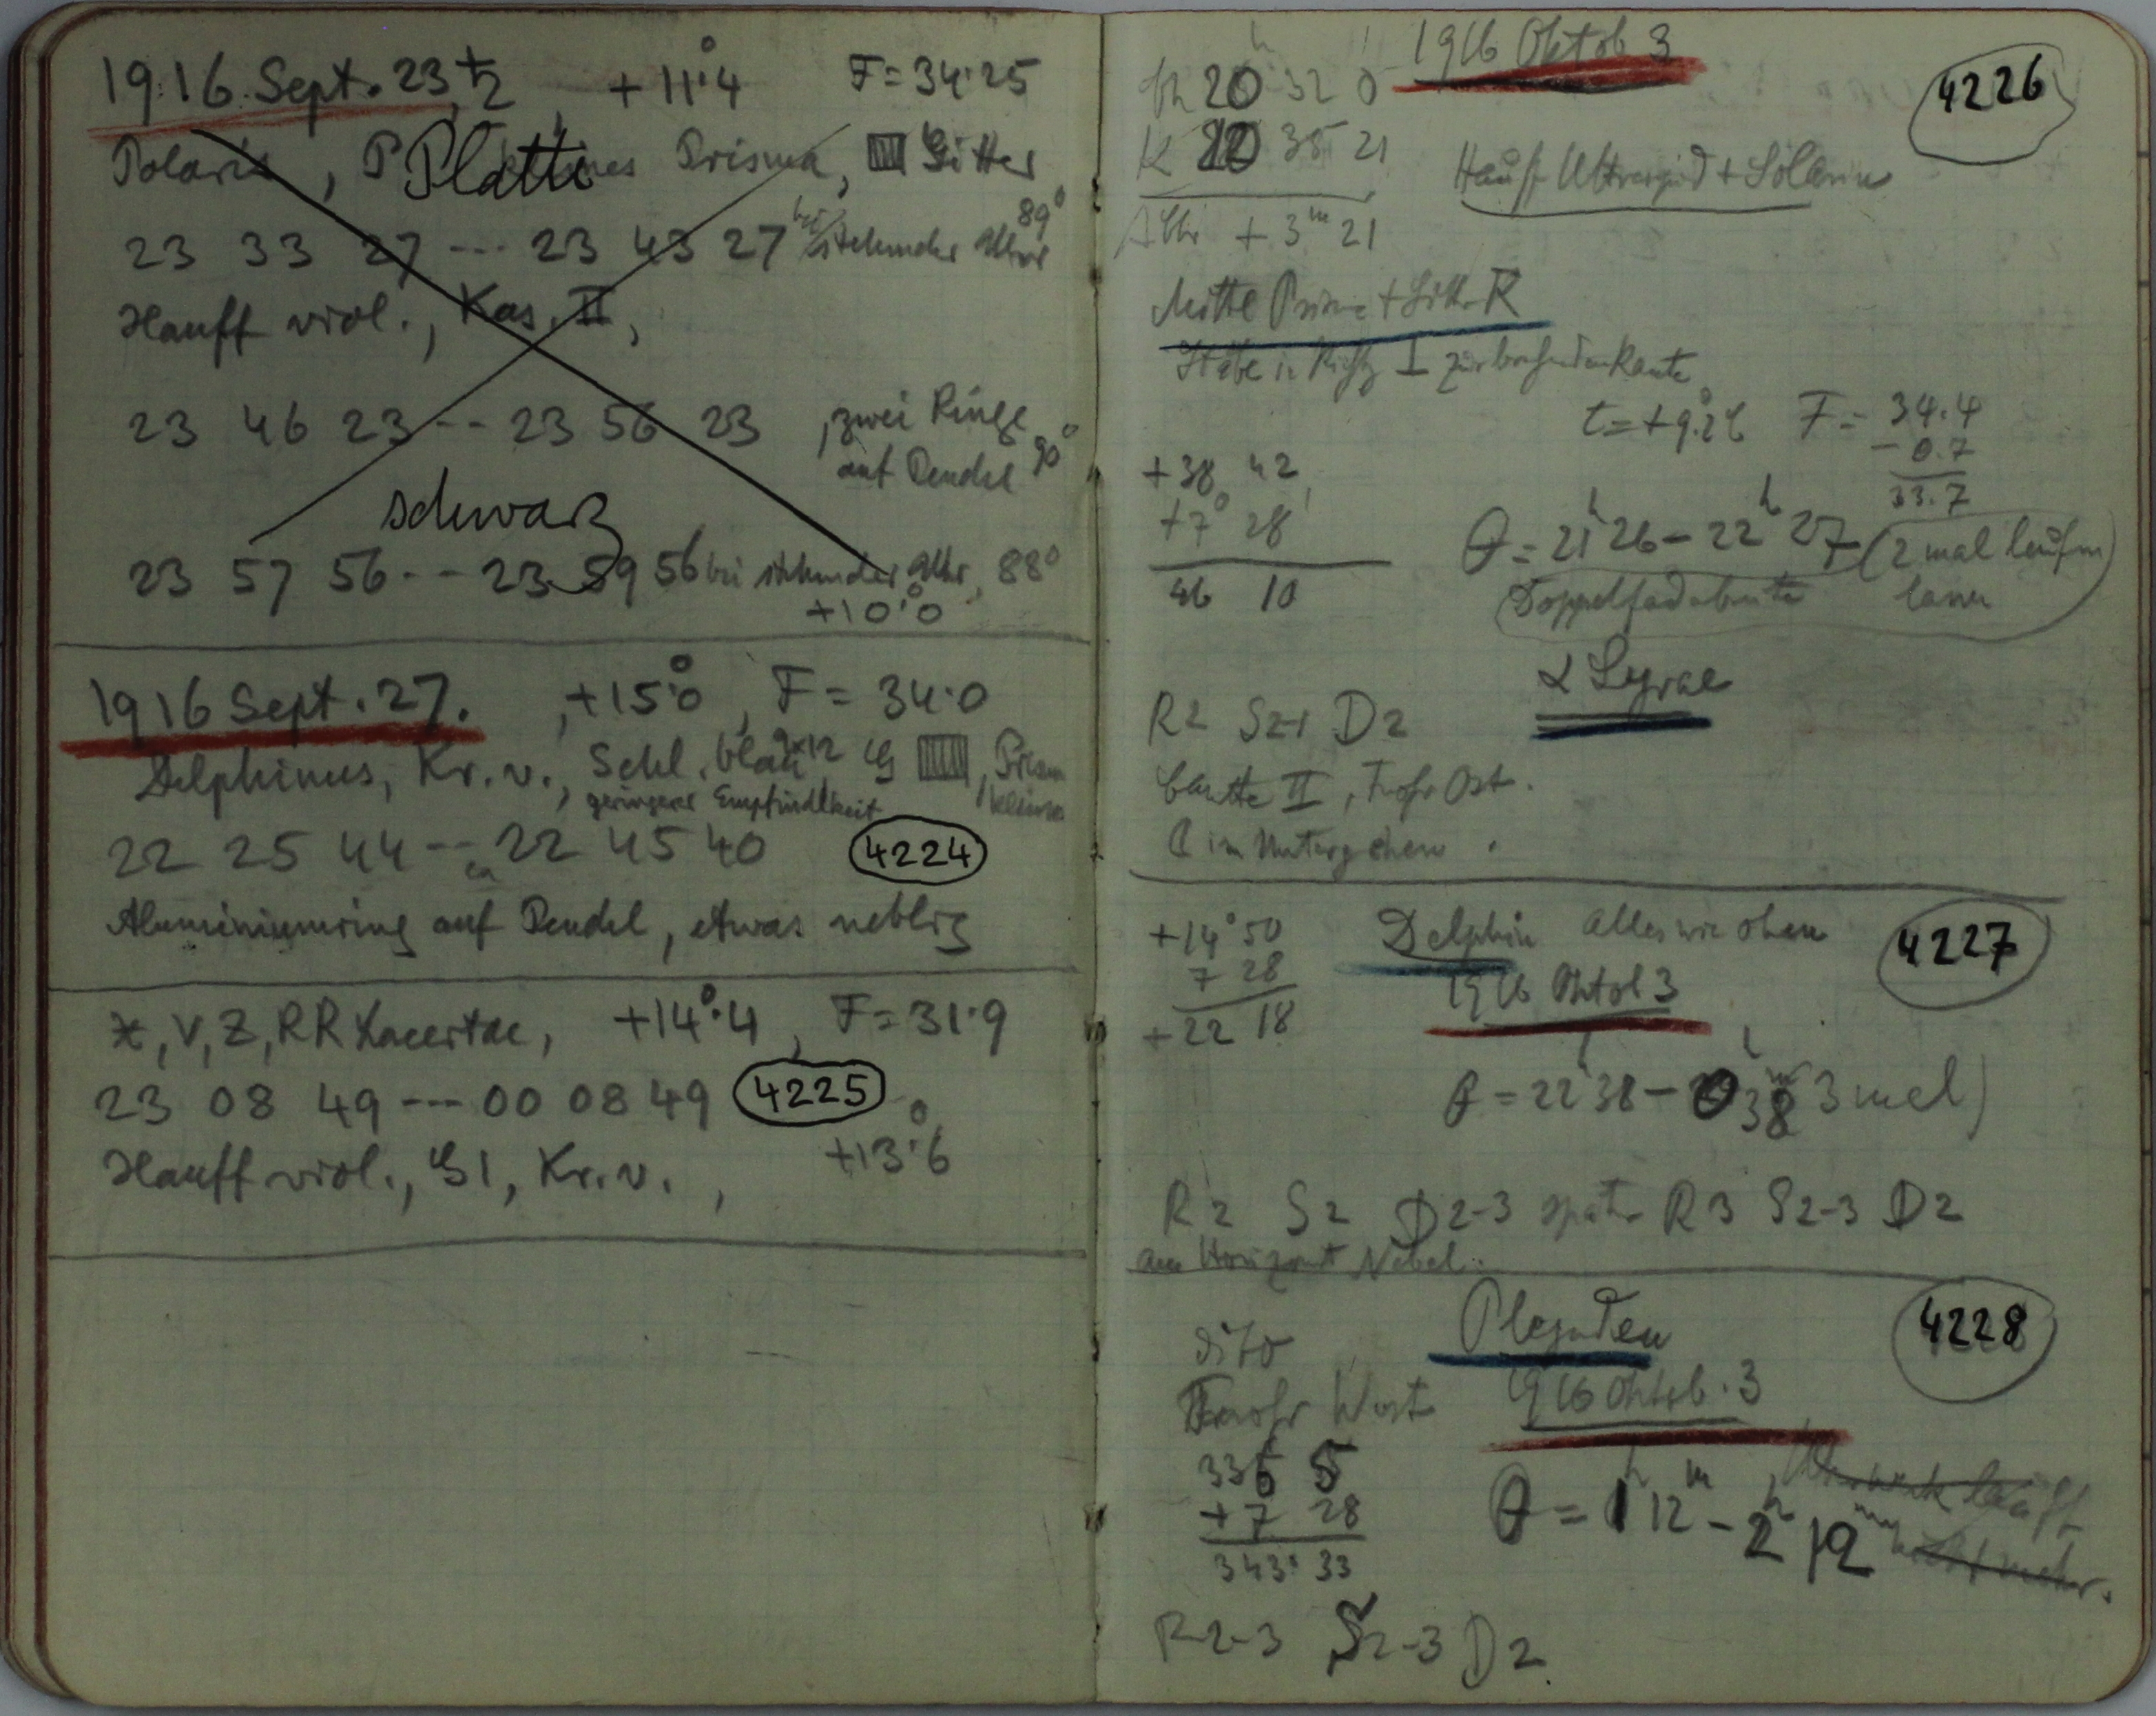 1916 Sept. 23, +11°.4 F=34.25
Polaris, Platte Prisma, Gitter
23 33 27 --- 23 43 27 bei stehender Uhr 89°
Hauff viol., Kas. II,
23 46 23 --- 23 56 23, zwei Ringe
auf Pendel 90°
schwarz
23 57 56 --- 23 59 56 bei stehender Uhr, 88°
+10°.0
1916 Sept. 27. , +15°.0, F = 34.0
Delphinus, Kr. v., Schl. blau 9x12 G , Prisma
geringerer Empfindlkeit kleines
22 25 44 --- 22 45 40 4224
ca
Aluminiumring auf Pendel, etwas neblig
V, Z, RR Lacertae, +14°.4, F=31.9
23 08 49 --- 00 08 49 4225
Hauff viol., G1, Kr. v., +13°.6
1916 Oktob 3
4226
Uh 20 32 0
K 20 35 21
Hauff Ultrarapid + Solarin
Δ Uhr + 3m 21
Mittl Prisma + Gitt. K
Stäbe in Richtg ⊥ zur brechenden Kante
t = +9°.26 F = 34.4
- 0.7
33.7
+38 42
+7° 28
46 10
θ = 21h 26 - 22h 27 (2 mal laufen
Doppelfadabente lassen
α Lyrae
R2 S2-1 D2
II, Frohr Ost.
☾ im Untergehen.
+14° 50
7 28
+22 18
Delphin alles wie oben
4227
1916 Oktob 3
θ = 22h 38 - 0h 38m 3 mal)
R2 S2 D2-3 später R3 S2-3 D2
am Horizont Nebel.
Plejaden
4228
dito
Frohr West
1916 Oktob. 3
335 5
+7 28
343° 33
θ = 1h 12m - 2h 12m
Uhrwerk läuft
nicht mehr.
R2-3 S2-3 D2.